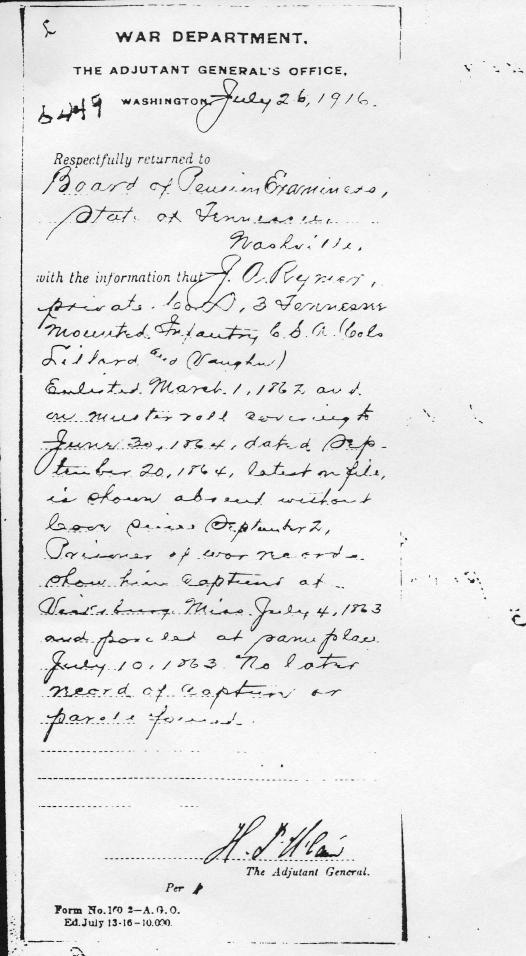 WAR DEPARTMENT,
THE ADJUTANT GENERAL'S OFFICE,
6449 WASHINGTON, July 26, 1916.
Respectfully returned to
Board of Pension Examiners,
State of Tennessee,
Nashville,
with the information that J. A. Rymer,
private Co D, 3 Tennessee
Mounted Infantry C.S.A. (Cols
Lillard and Vaughn)
Enlisted March 1, 1862 and
on muster roll covering to
June 30, 1864, dated Sep-
tember 20, 1864, latest on file,
is shown absent without
leave since September 2,
Prisoner of war records
show him captured at
Vicksburg Miss July 4, 1863
and paroled at same place
July 10, 1863. No later
record of capture or
parole found.
The Adjutant General.
Per
Form No. 160 2—A. G. O.
Ed. July 13-16—10,000.